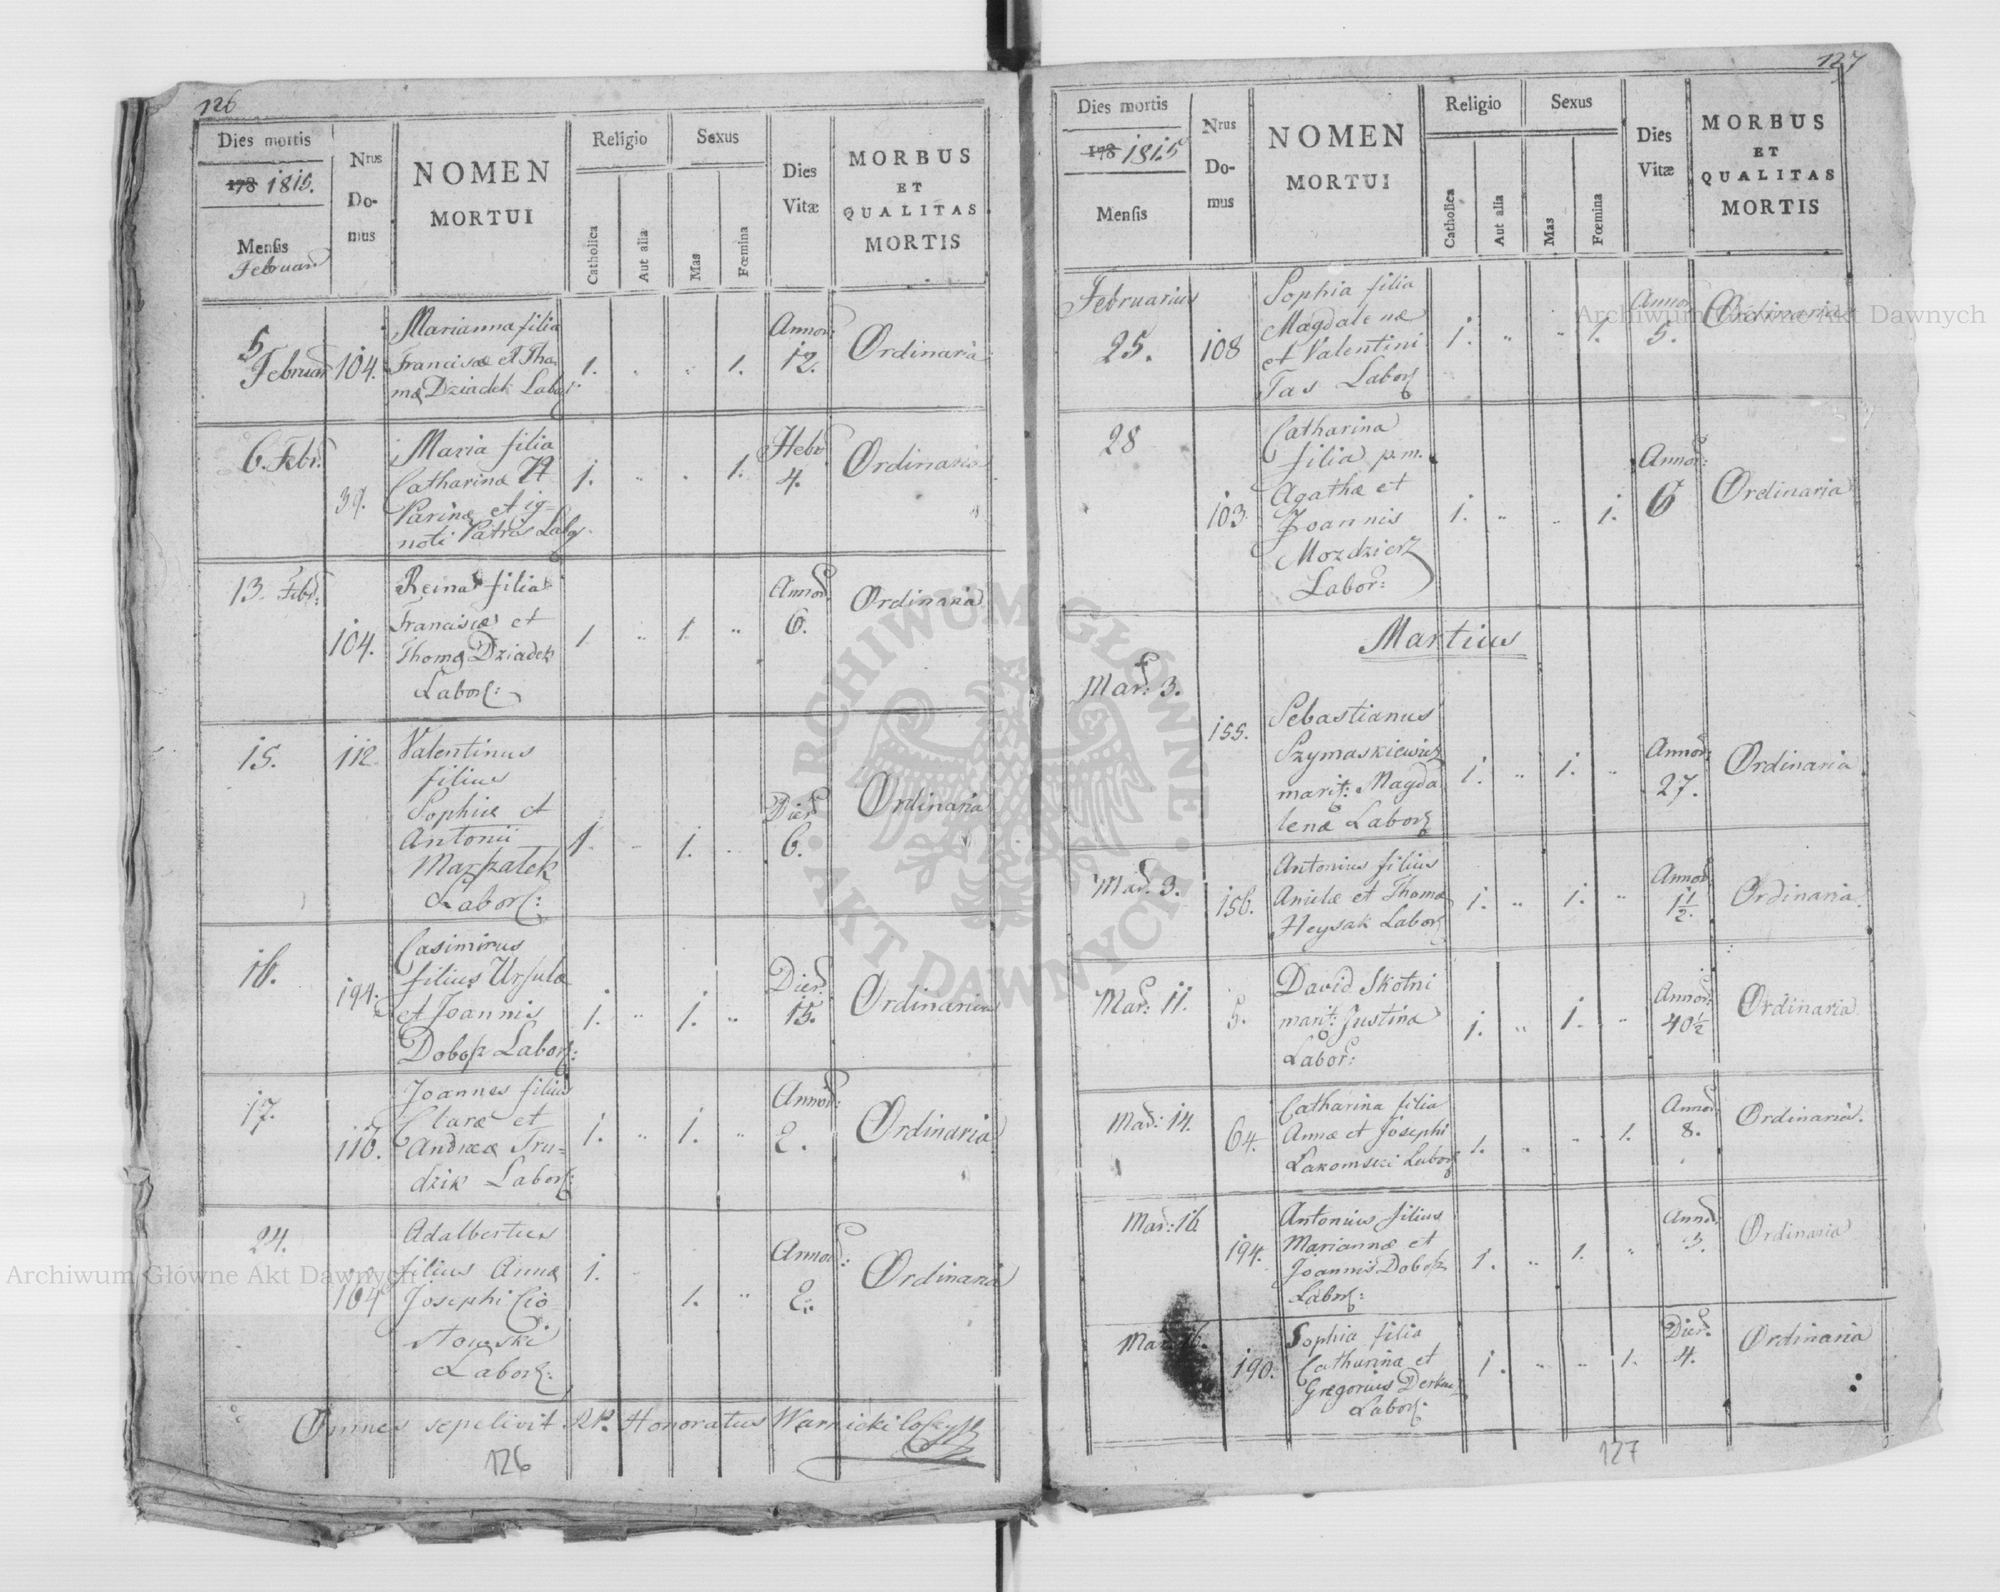 126
Dies mortis
178 1815.
Mensis
Februari
Nrus
Do-
mus
NOMEN
MORTUI
Religio
Catholica
Aut alia
Sexus
Mas
Fœmina
Dies
Vitæ
MORBUS
ET
QUALITAS
MORTIS
5
Februari 104.
Marianna filia
Franciscæ et Tho
mæ Dziadek Labor:
1. " " 1.
Annor:
12.
Ordinaria
6. Febr:
39.
Maria filia
Catharinæ
et ig-
noti Patris Labor
1. " " 1.
Hebd
4.
Ordinaria
13. Febr:
104.
Reina filia
Franciscæ et
Thomæ Dziadek
Labor:
1 " 1. "
Annor:
6.
Ordinaria
15. 112.
Valentinus
filius
Sophiæ et
Antonii
Marszałek
Labor:
1. " 1. "
Dier:
6.
Ordinaria
16.
194.
Casimirus
filius Ursulæ
et Joannis
Dobosz Labor:
1. " 1. "
Dier:
15.
Ordinaria
17.
116.
Joannes filius
Claræ et
Andreæ Tru-
dzik Labor:
1. " 1. "
Annor:
2.
Ordinaria
24.
164
Adalbertus
filius Annæ
Josephi Cio-
stowski
Labor:
1. " 1. "
Annor:
2.
Ordinaria
Omnes sepelivit RP. Honoratus Warnicki
126
127
Dies mortis
178 1815
Mensis
Nrus
Do-
mus
NOMEN
MORTUI
Religio
Catholica
Aut alia
Sexus
Mas
Fœmina
Dies
Vitæ
MORBUS
ET
QUALITAS
MORTIS
Februarius
25. 108
Sophia filia
Magdalenæ
et Valentini
Tas Labor:
1. " " 1.
Annor
5.
Ordinaria
28
103.
Catharina
filia p.m.
Agathæ et
Joannis
Mozdzierz
Labor:
1. " " 1.
Annor:
6
Ordinaria
Martius
Mar: 3.
155.
Sebastianus
Szymaskiewicz
marit: Magda
lenæ Labor:
1. " 1. "
Annor:
27.
Ordinaria
Mar: 3.
156.
Antonius filius
Anielæ et Thomæ
Heysak Labor:
1. " 1. "
Annor:
1 1/2.
Ordinaria
Mar: 11.
5.
David Skotni
marit: Justina
Labor:
1. " 1. "
Annor:
40 1/2
Ordinaria
Mar: 14.
64.
Catharina filia
Annæ et Josephi
Lakomski Labor:
1. " " 1.
Annor
8.
Ordinaria.
Mar: 16
194.
Antonius filius
Mariannæ et
Joannis Dobosz
Labor:
1. " 1. "
Annor:
3.
Ordinaria
190.
Sophia filia
Catharinæ et
Gregorius
Labor:
1. " " 1.
Dier:
4.
Ordinaria
127
Archiwum Główne Akt Dawnych
Archiwum Główne Akt Dawnych
ARCHIWUM GŁÓWNE · AKT DAWNYCH ·